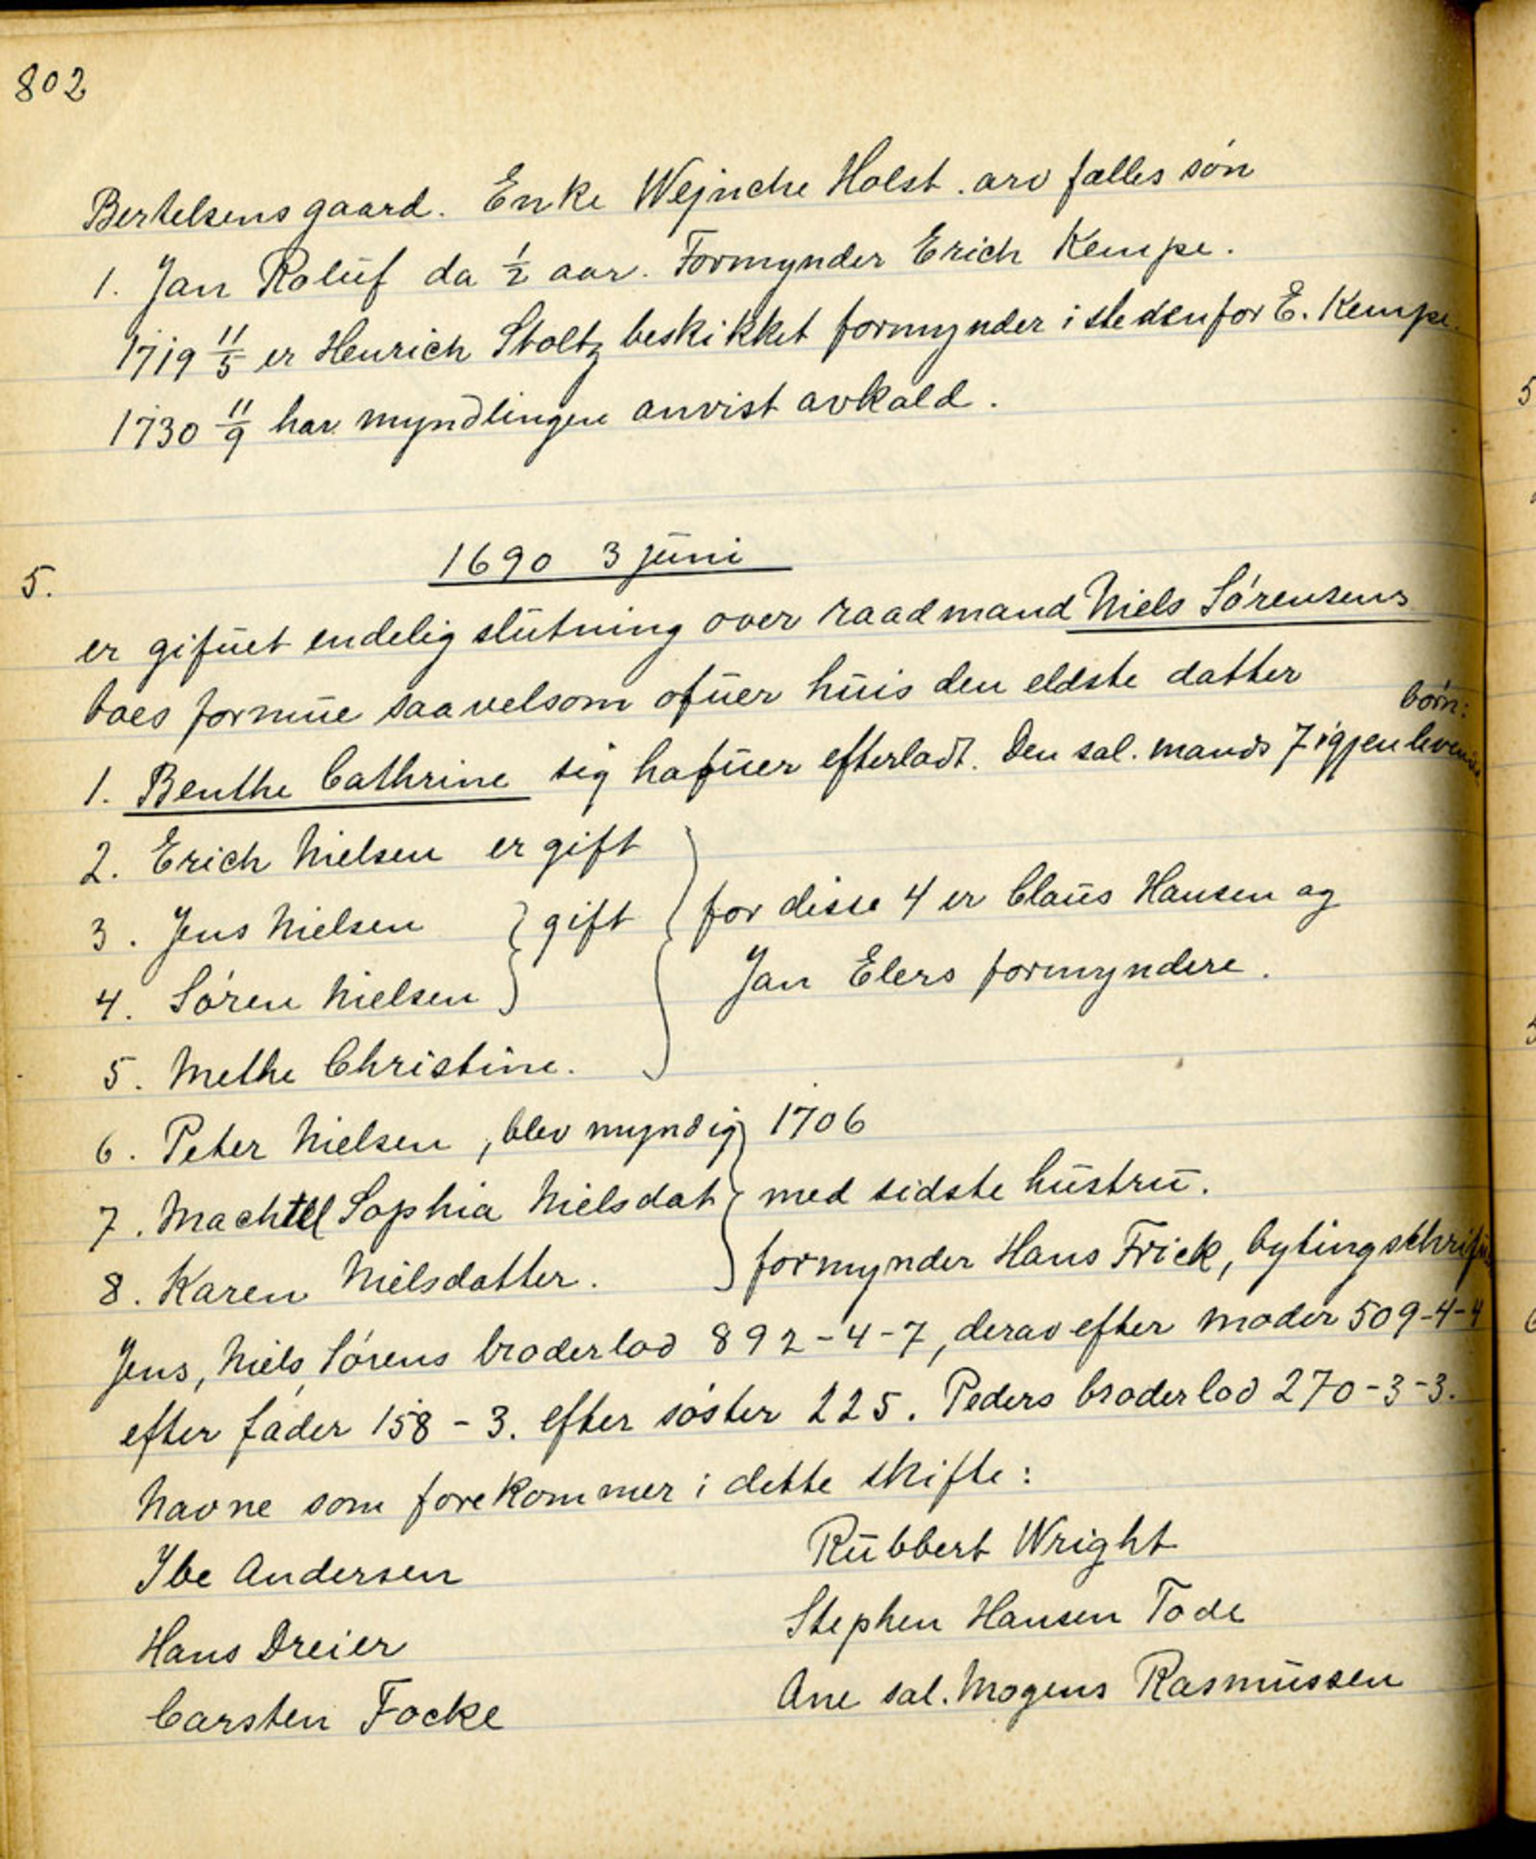 802
Bertelsens gaard. Enke Wejnche Holst. arv fælles søn
1. Jan Roluf da ½ aar. Formynder Erich Kempe.
1719 11/5 er Henrich Stoltz beskikket formynder i stedenfor E. Kempe.
1730 11/9 har myndlingen anvist avkald.
1690 3 juni
5.
er gifuet endelig slutning over raadmand Niels Sørensens
boes formue saavelsom ofuer huis den eldste datter
børn:
1. Benthe Cathrine sig hafuer efterladt. Den sal. mands 7 igjenlevende
2. Erich Nielsen er gift
3. Jens Nielsen } gift } for disse 4 er Claus Hansen og
4. Søren Nielsen Jan Elers formyndere.
5. Methe Christine.
6. Peter Nielsen, blev myndig 1706
7. Machtel Sophia Nielsdat } med sidste hustru.
8. Karen Nielsdatter. formynder Hans Frick, bytingschrifu
Jens, Niels Sørens broderlod 892-4-7, derav efter moder 509-4-4
efter fader 158-3. efter søster 225. Peders broderlod 270-3-3.
Navne som forekommer i dette skifte:
Ibe Andersen
Rubbert Wright
Hans Dreier
Stephen Hansen Tode
Carsten Focke
Ane sal. Mogens Rasmussen